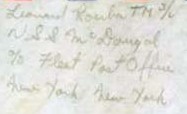 Leonard Rowba TM 3/c
U.S.S. McDougal
c/o Fleet Post Office
New York New York